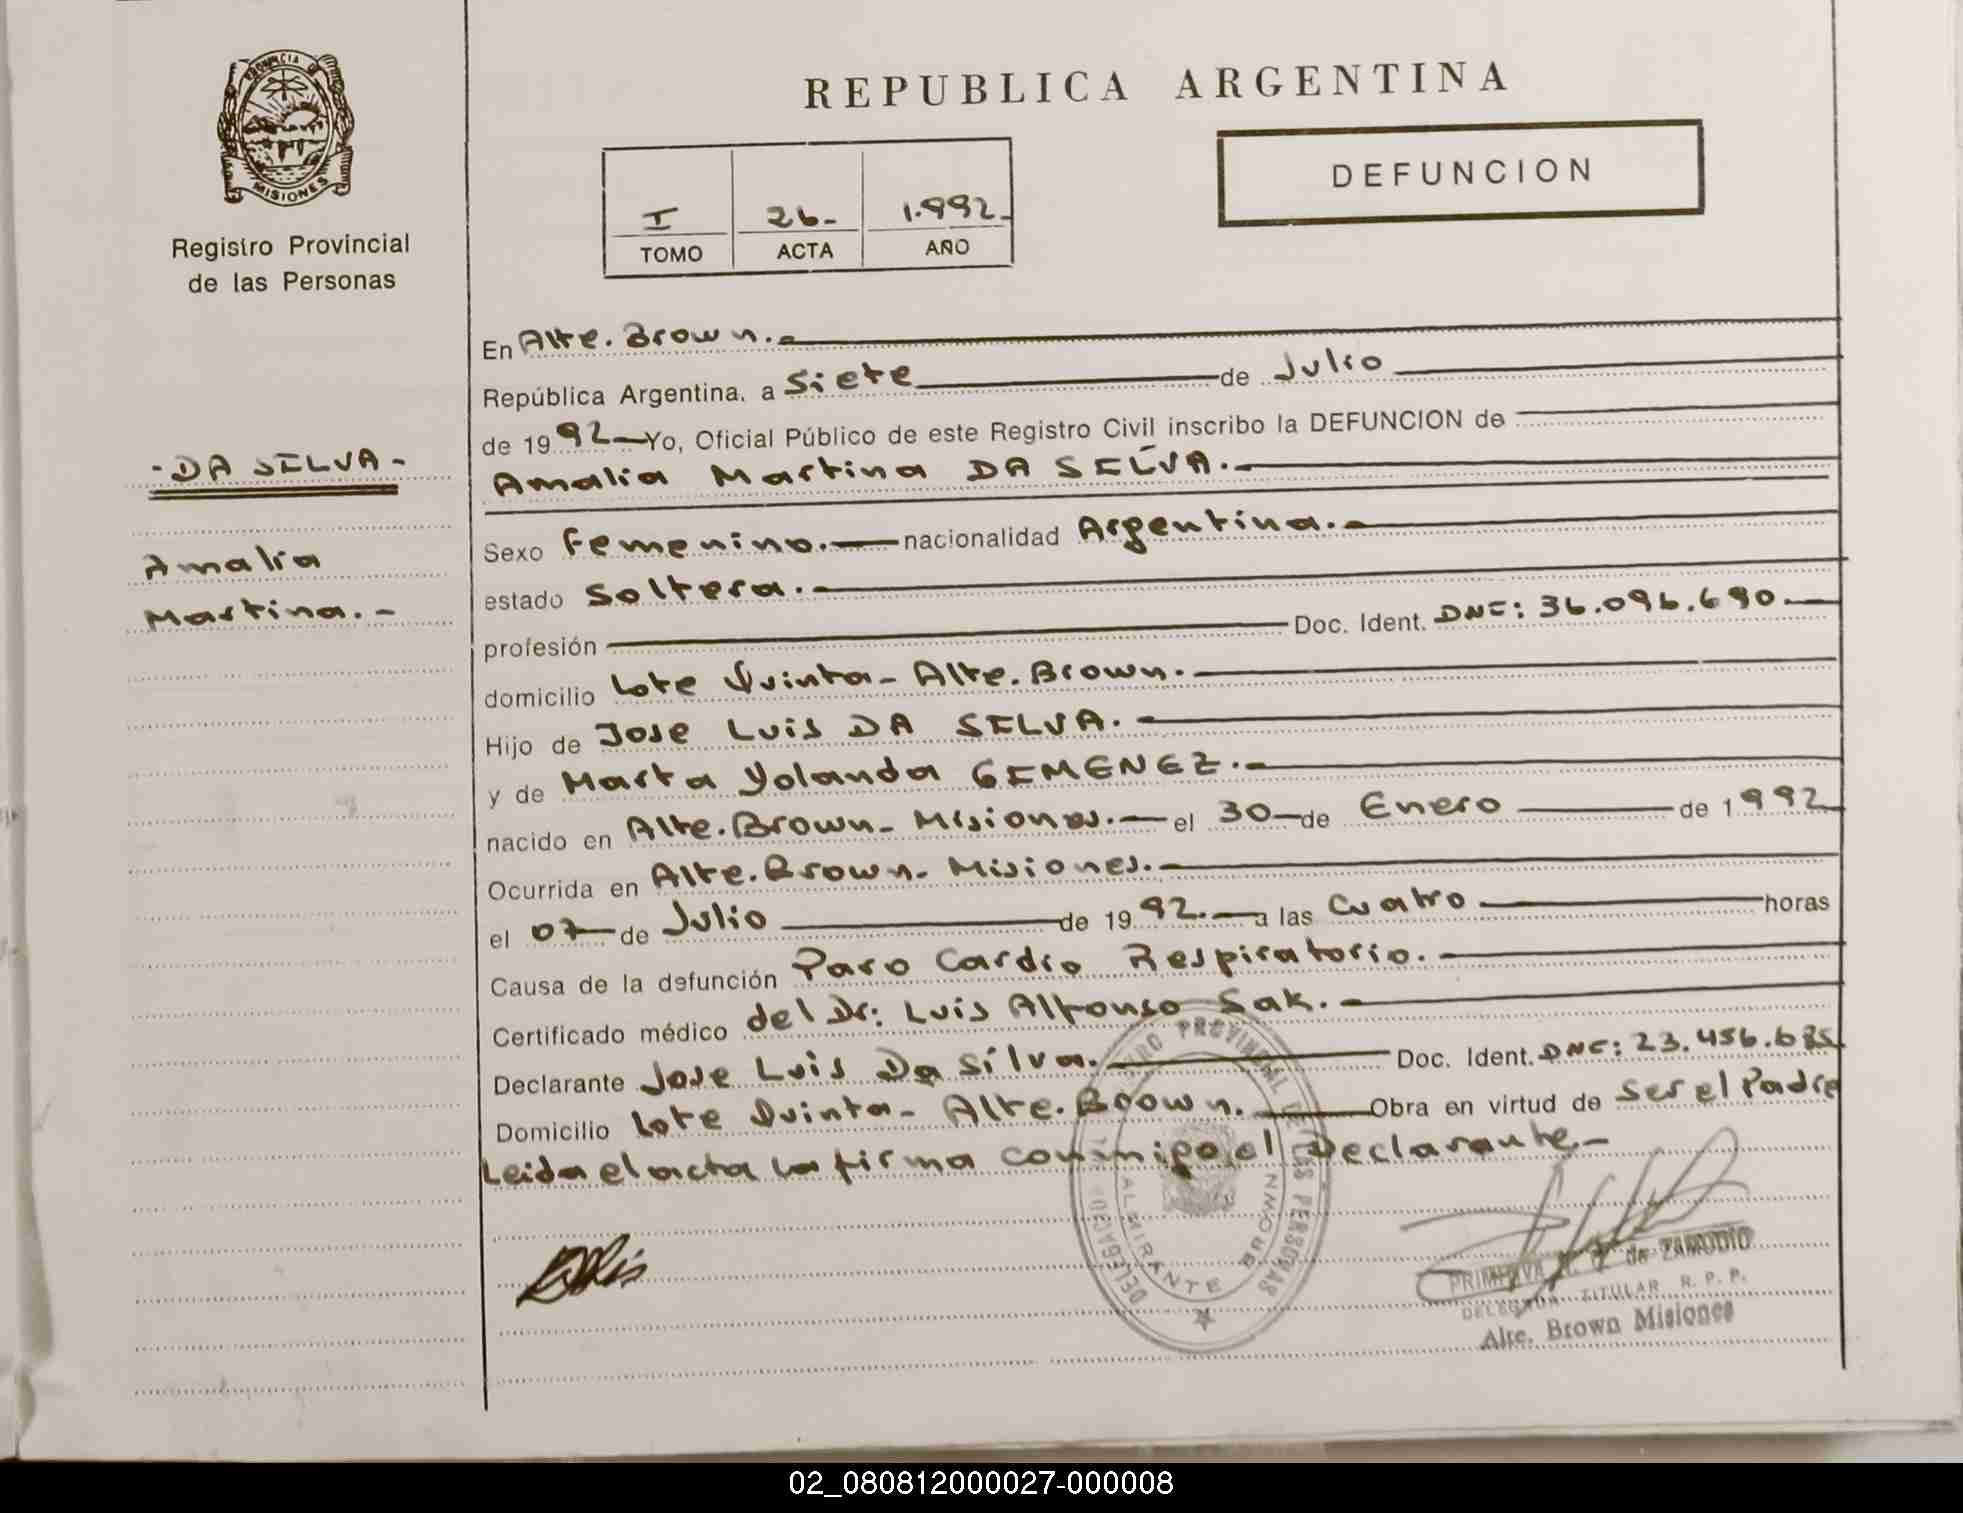 PROVINCIA DE
MISIONES
Registro Provincial
de las Personas
REPUBLICA ARGENTINA
DEFUNCION
I 26- 1.992-
TOMO ACTA AÑO
- DA SILVA -
Amalia
Martina.-
En Alte. Brown.-
República Argentina, a Siete de Julio
de 1992 Yo, Oficial Público de este Registro Civil inscribo la DEFUNCION de
Amalia Martina DA SILVA.-
Sexo Femenino.- nacionalidad Argentina.-
estado Soltera.-
profesión Doc. Ident. DNI: 36.096.690.-
domicilio Lote Quinta- Alte. Brown.-
Hijo de Jose Luis DA SILVA.-
y de Marta Yolanda GIMENEZ.-
nacido en Alte. Brown- Misiones.- el 30 de Enero de 1992
Ocurrida en Alte. Brown- Misiones.-
el 07 de Julio de 1992.- a las Cuatro horas
Causa de la defunción Paro Cardio Respiratorio.-
Certificado médico del Dr: Luis Alfonso Sak.-
Declarante Jose Luis Da Silva.- Doc. Ident. DNI: 23.456.685
Domicilio Lote Quinta- Alte. Brown.- Obra en virtud de Ser el Padre
Leida el acta la firma conmigo el Declarante.-
REGISTRO PROVINCIAL DE LAS PERSONAS
DELEGACION
ALMIRANTE BROWN
PRIMITIVA de ZAMUDIO
DELEGADA TITULAR R. P. P.
Alte. Brown Misiones
02_080812000027-000008